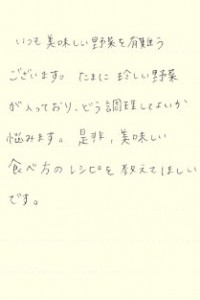 いつも美味しい野菜を有難う
ございます。たまに珍しい野菜
が入っており、どう調理してよいか
悩みます。是非、美味しい
食べ方のレシピを教えてほしい
です。